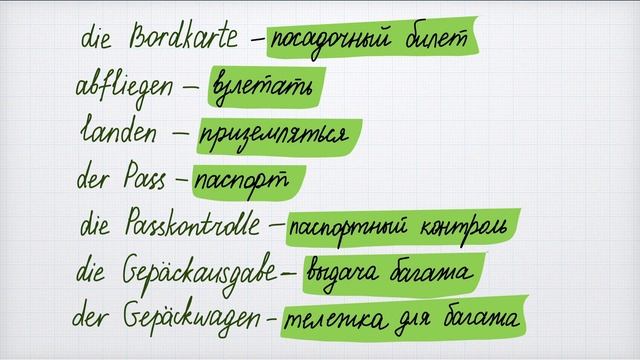 die Bordkarte – посадочный билет
abfliegen – взлетать
landen – приземляться
der Pass – паспорт
die Passkontrolle – паспортный контроль
die Gepäckausgabe – выдача багажа
der Gepäckwagen – тележка для багажа